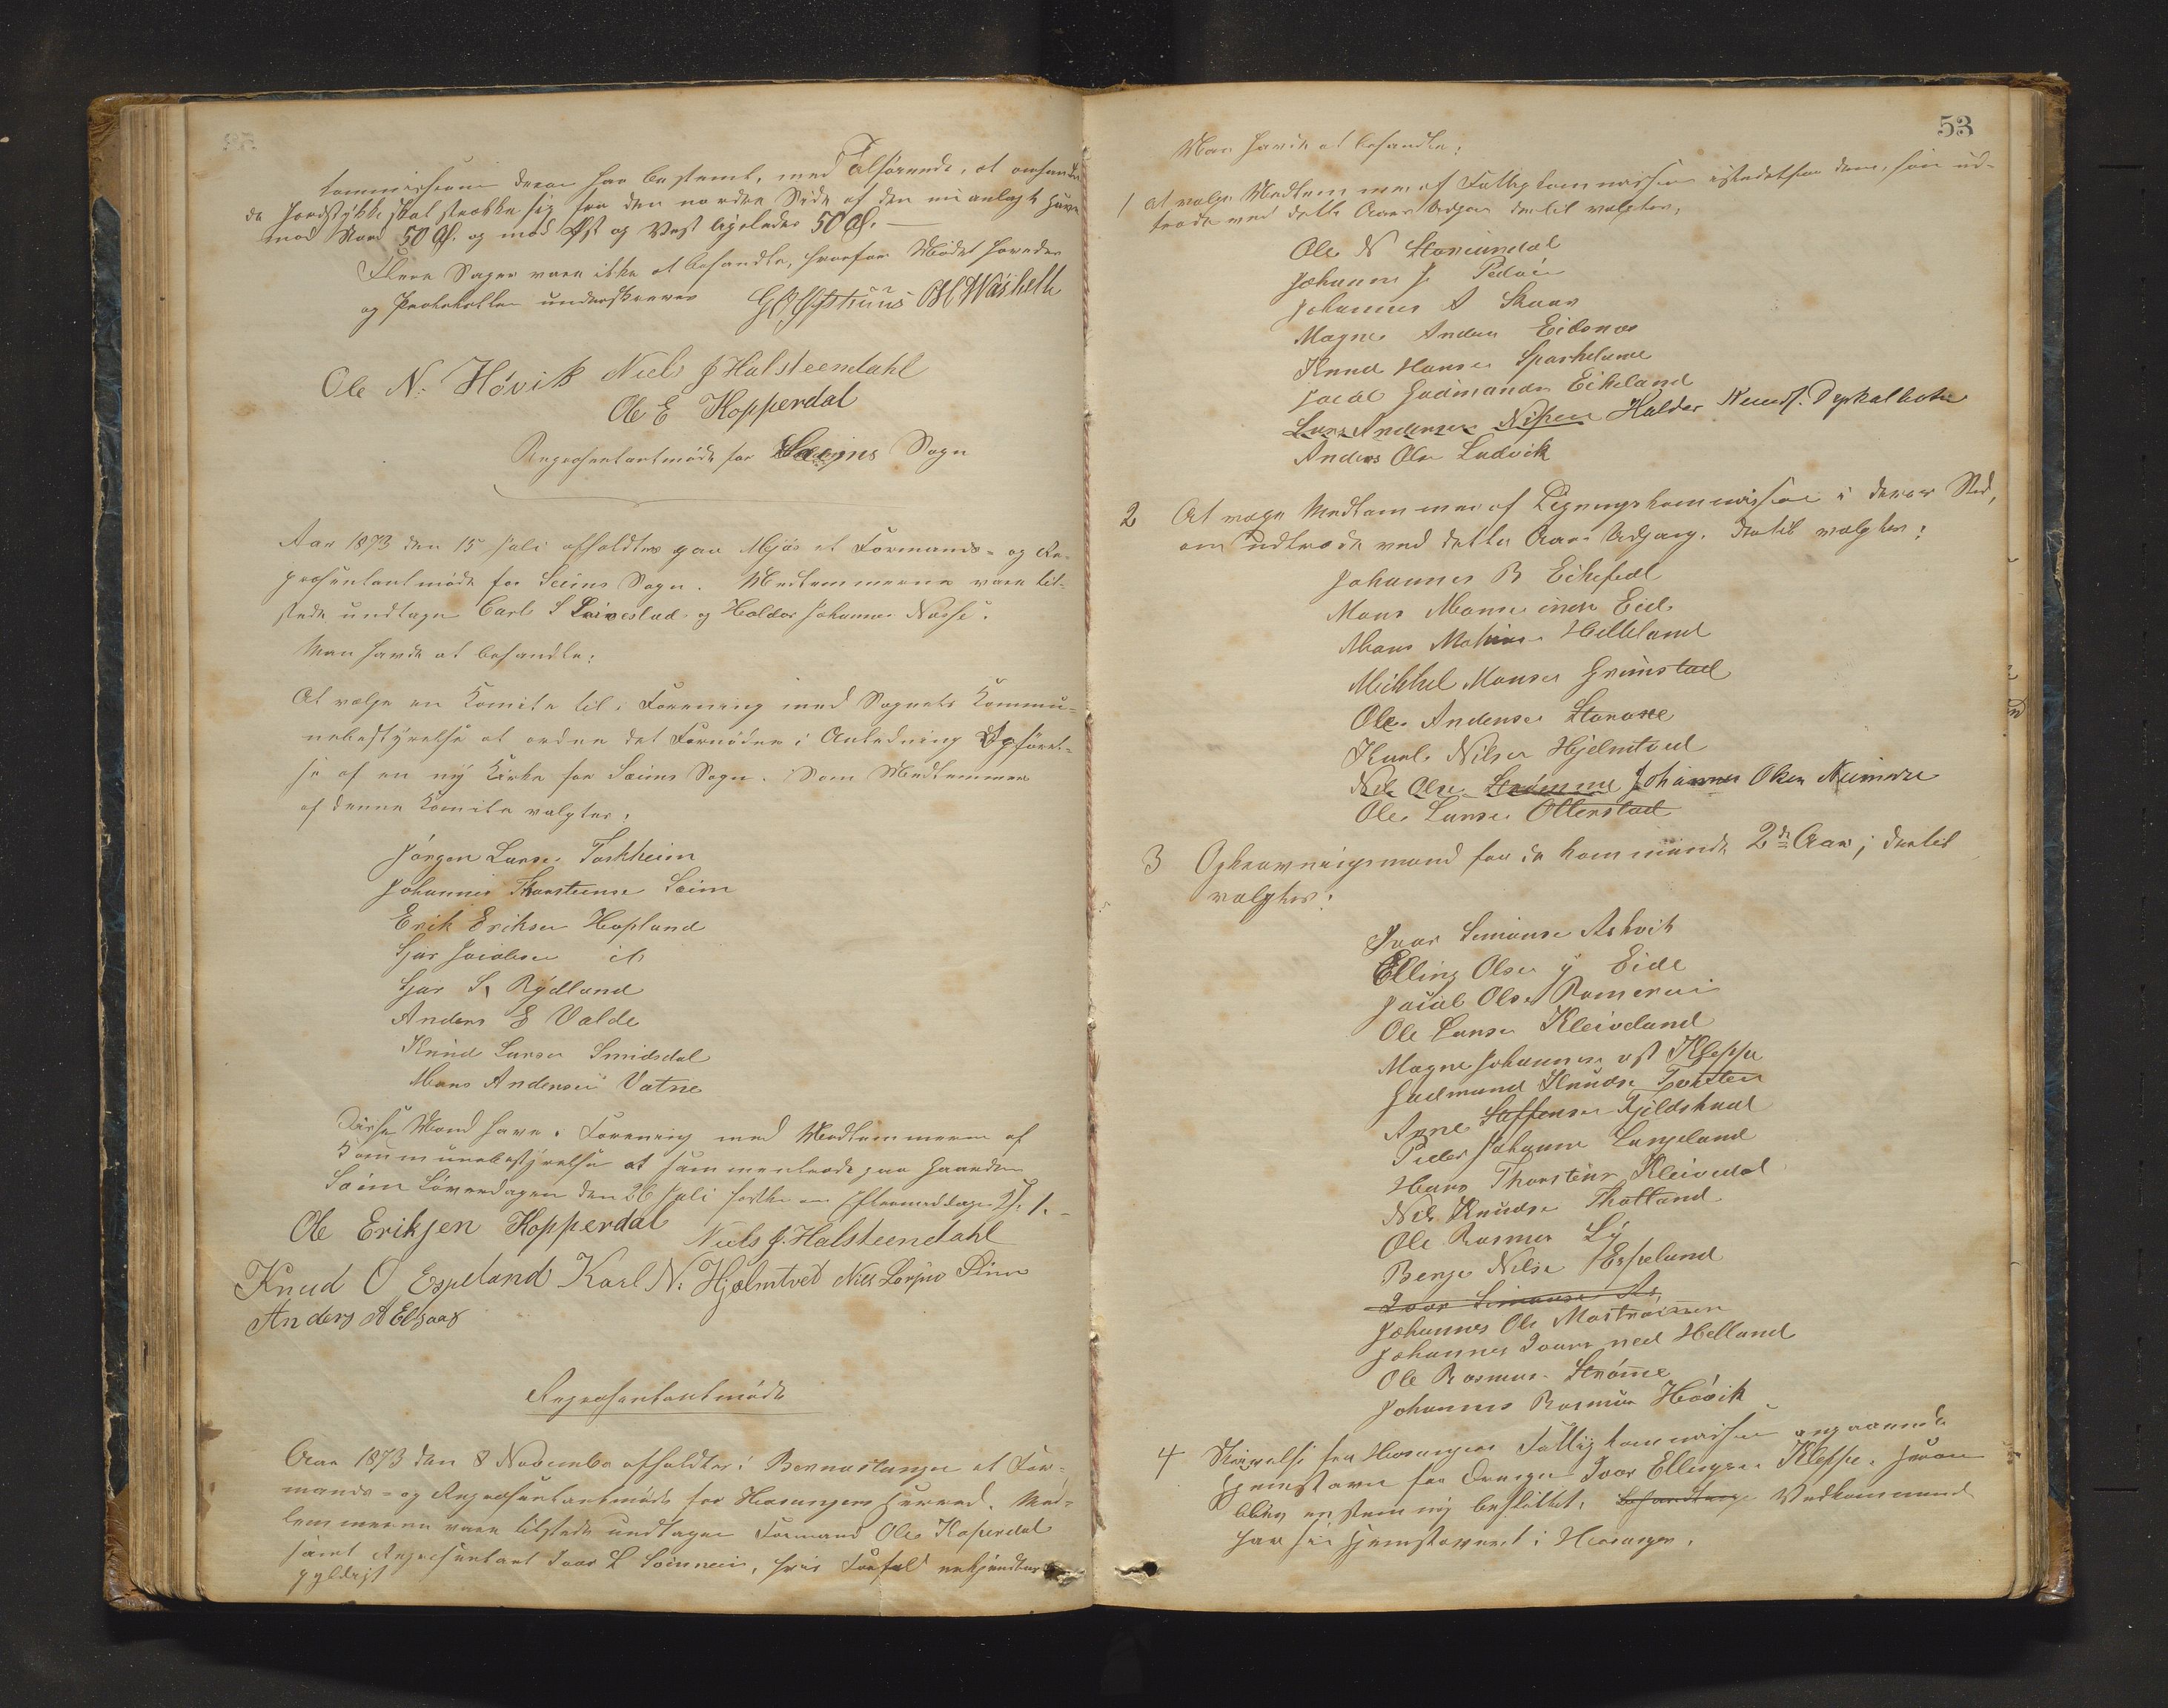 kommissionen derom har bestemt, med Tilføiende, at omhandle-
de Jordstykke skal strække sig fra den nordre Side af den nu anlagte Have
mod Nord 50 Al. og mod Øst og Vest ligeledes 50 Al. —
Flere Sager vare ikke at behandle, hvorfor Mødet hævedes
og Protokollen underskreves
Ole N. Høvik Niels J Halsteendahl
Ole E Kopperdal
Repræsentantmøde for Sæims Sogn
Aar 1873 den 15 Juli afholdtes paa Mjøs et Formands- og Re-
præsentantmøde for Seims Sogn. Medlemmerne vare til-
stede undtagen Carl S Leivestad og Haldor Johannes Nesse.
Man havde at behandle:
At vælge en Komite til i Forening med Sognets Kommu-
nebestyrelse at ordne det Fornødne i Anledning Opførel-
se af en ny Kirke for Sæims Sogn. Som Medlemmer
af denne Komite valgtes:
Jørgen Larsen Toskheim
Johannes Thorsteense Seim
Erik Eriksen Hopland
Sjur Jacobsen ib
Sjur S. Rydland
Anders E Valde
Knud Larsen Smidsdal
Mons Andersen Vatne
Disse Mænd have i Forening med Medlemmerne af
Kommunebestyrelsen at sammentræde paa Gaarden
Seim Løverdagen den 26 Juli førstk. om Eftermiddagen Kl. 1. –
Ole Eriksen Kopperdal Niels J. Halsteendahl
Knud O Espeland Karl N. Hjelmtvet Nils
Anders A Elsaas
Repræsentantmøde
Aar 1873 den 8 November afholdtes i Bernestangen et For-
mands- og Repræsentantmøde for Hosangers Herred. Med-
lemmerne vare tilstede undtagen Formand Ole Koperdal
samt Repræsentant Ivar L Soinnein, hvis Forfald erkjendtes
gyldigt
53
Man havde at behandle:
1 At vælge Medlemmer af Fattigkommissionen istedetfor dem, som ud-
træde ved dette Aars Udgang dertil valgtes,
Ole N
Johannes J Padøen
Johannes A Skaar
Magne Anders Eidsnes
Knud Hansen
Jacob Gudmands Eikeland
Lars Andersen Nipen Haldor
Anders Olse Ludvik
2 At vælge Medlemmer af Ligningskommissionen i deres Sted,
om udtræde ved dette Aars Udgang. Dertil valgtes:
Johannes R Eikefedt
Mons Monse indre Eide
Mons Helleland
Mikkel Monsen Grimstad
Ole Andersen
Karl Nilsen Hjelmtved
Nils Olse Johannes Olsen
Ole Larsen Otterstad
3 Opkrævningsmænd for de kommende 2de Aar; dertil
valgtes:
Ivar Simonse Askvik
Elling Olsen y Eide
Jacob Olsen
Ole Larsen Kleiveland
Magne Johannesen øst Kleppe
Gudmund Knudse
Arne Steffensen Kjildstad
Peder Johannes Langeland
Hans Thorsteins Kleivedal
Nils Knudse Thotland
Ole Rasmus Ly
Berge Nilse Espeland
Ivar Simonse As
Johannes Ole Mostrøinen
Johannes Ivars ned Helland
Ole Rasmus Strømme
Johannes Rasmus Høvik
4 Skrivelse fra Hosangers Fattigkommission angaaende
Hjemstavn for Drengen Ivar Ellingsen Kleppe. Hvorom
blev enstemmig besluttet, Vedkommende
har sin Hjemstavnsret i Hosanger.